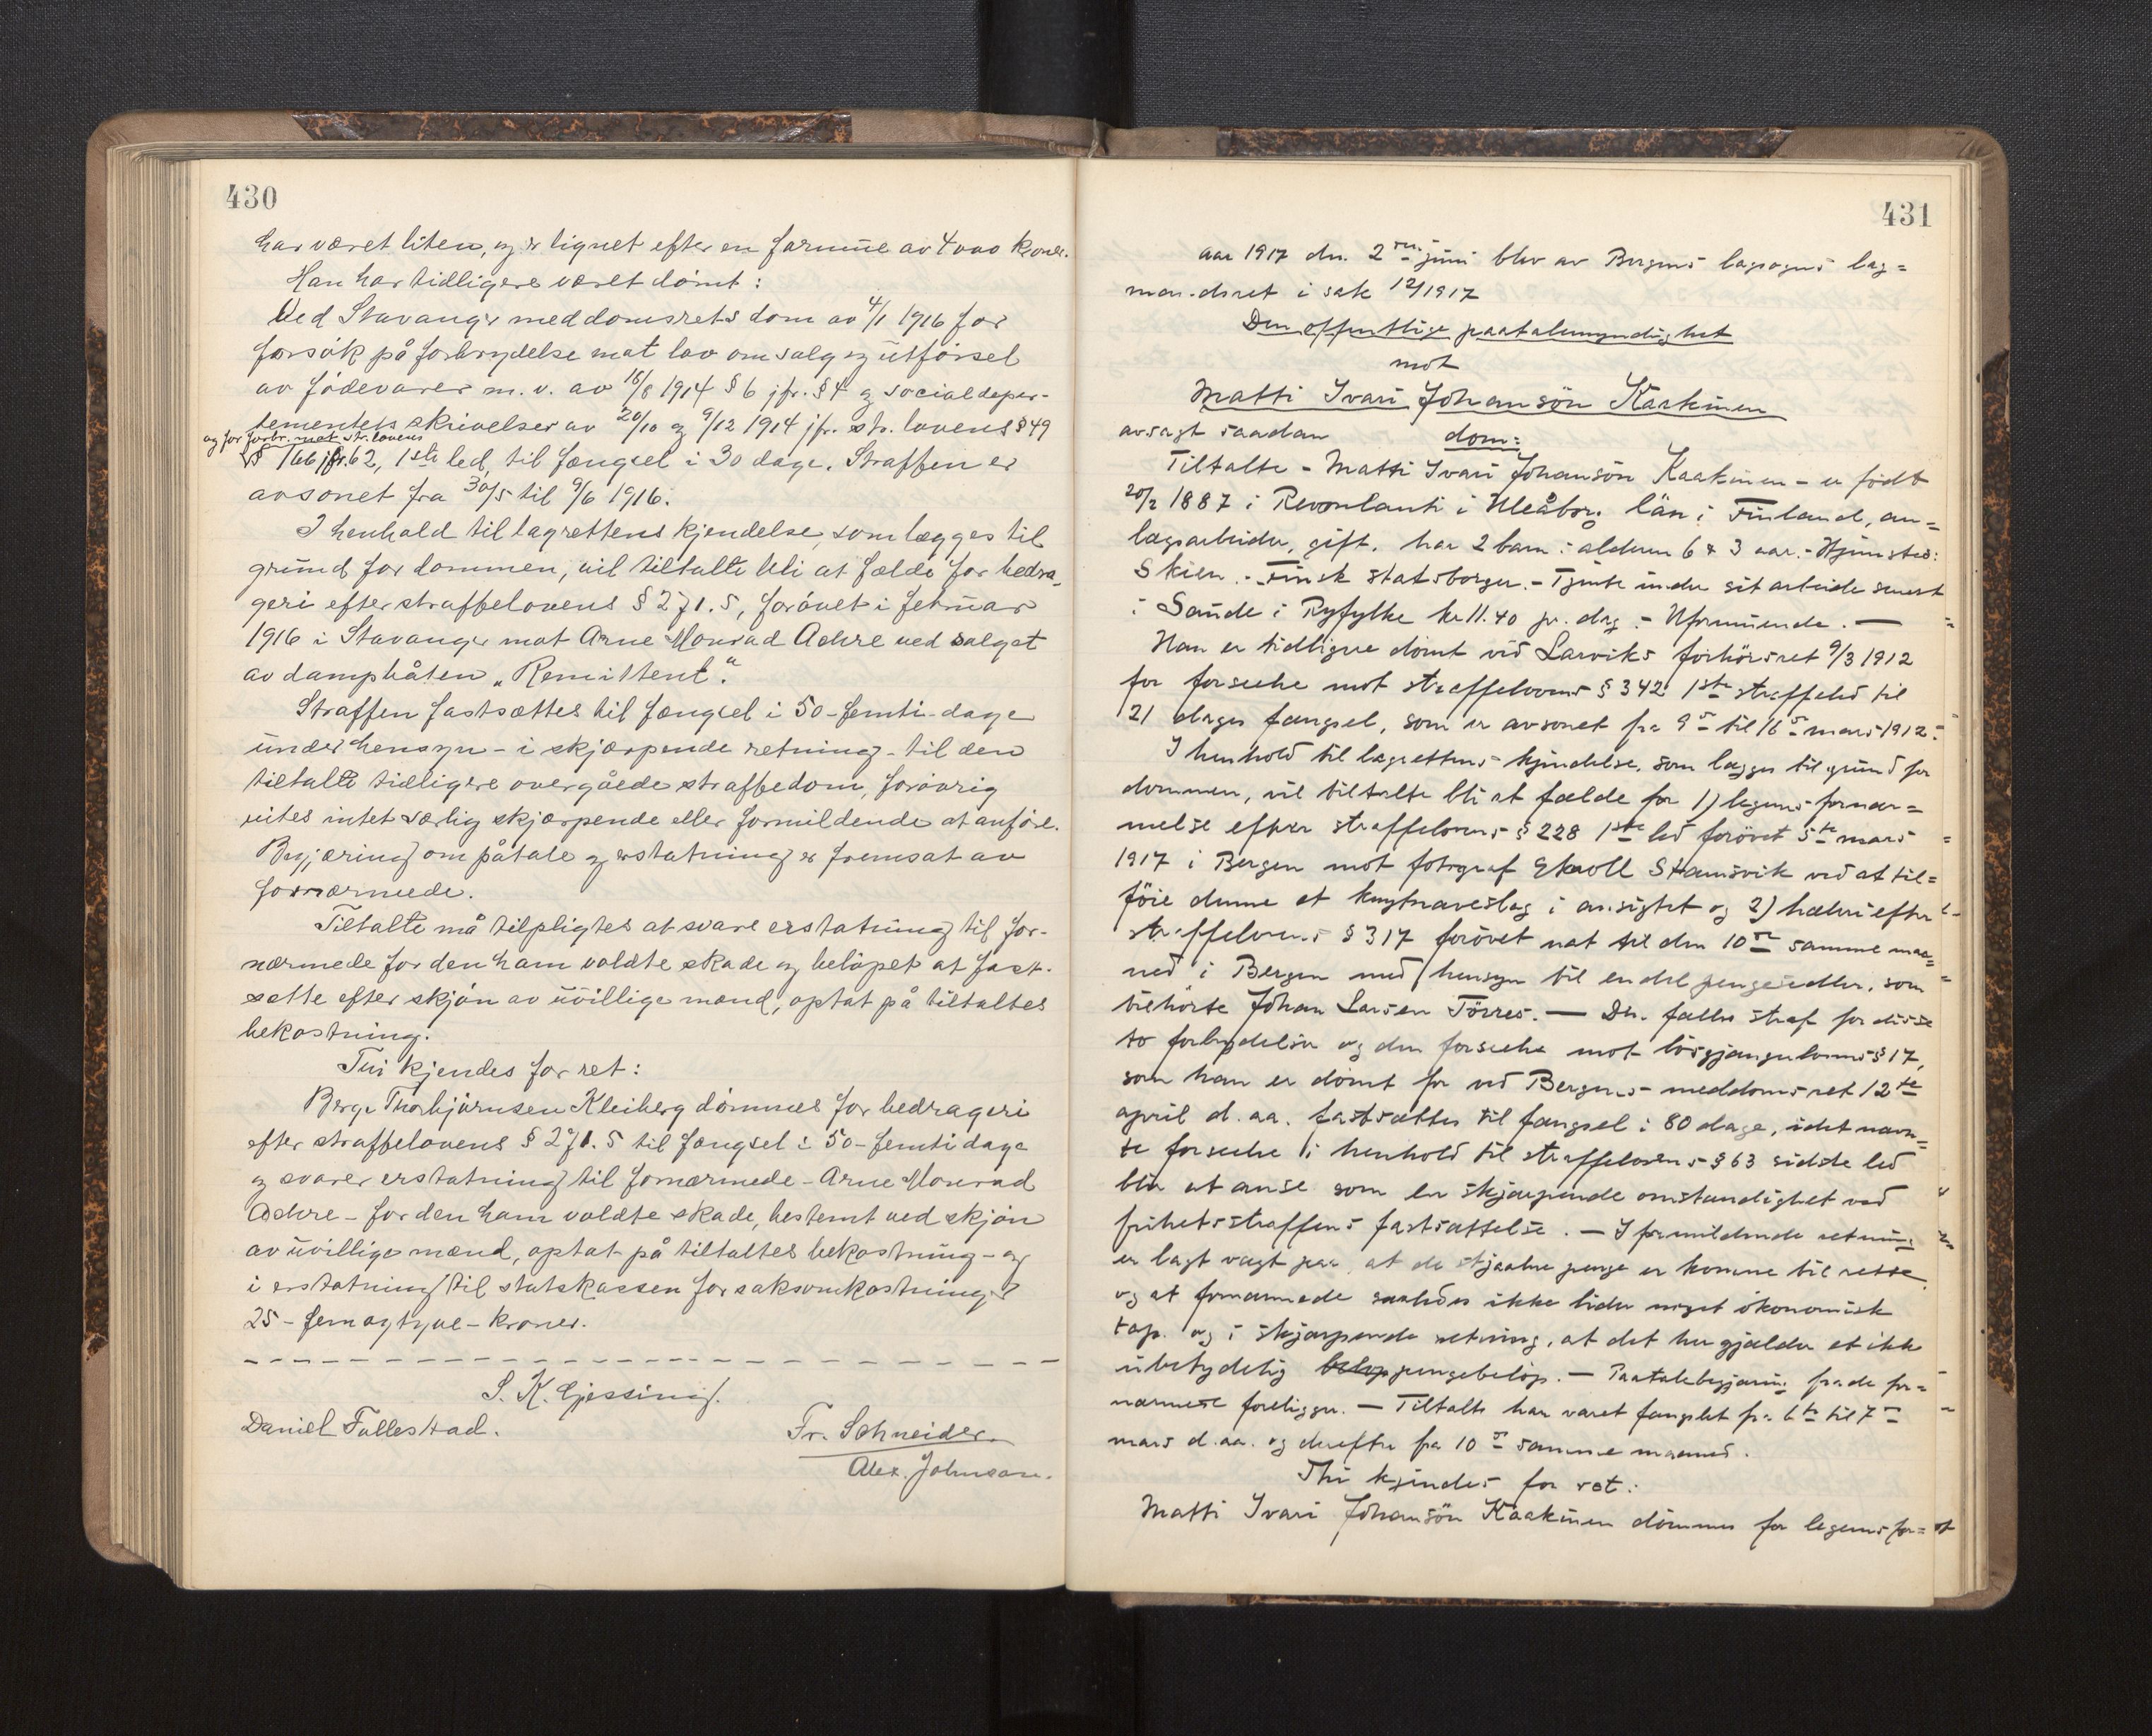 430
har været liten, og er lignet efter en formue av 4000 kroner.
Han har tidligere været dømt:
Ved Stavanger meddomsrets dom av 4/1 1916 for
forsök på forbrydelse mot lov om salg og utförsel
av födevarer m. v. av 18/8 1914 § 6 jfr. § 4 og socialdepar-
tementets skrivelser av 20/10 og 9/12 1914 jfr. str. lovens § 49
og for forbr. mot str. lovens
§ 166 jfr. 62, 1ste led, til fængsel i 30 dage. Straffen er
avsonet fra 30/5 til 9/6 1916.
I henhold til lagrettens kjendelse, som lægges til
grund for dommen, vil tiltalte bli at fælde for bedra-
geri efter straffelovens § 271.5, forövet i februar
1916 i Stavanger mot Arne Monrad Achre ved salget
av dampbåten „Remittent“.
Straffen fastsættes til fængsel i 50 - femti - dage
under hensyn - i skjærpende retning - til den
tiltalte tidligere overgåede straffedom, forövrig
vites intet særlig skjærpende eller formildende at anföre.
Begjæring om påtale og erstatning er fremsat av
fornærmede.
Tiltalte må tilpligtes at svare erstatning til for-
nærmede for den ham voldte skade og belöpet at fast-
sætte efter skjön av uvillige mænd, optat på tiltaltes
bekostning.
Thi kjendes for ret:
Berge Thorbjörnsen Kleiberg dömmes for bedrageri
efter straffelovens § 271.5 til fængsel i 50 - femti dage
og svarer erstatning til fornærmede - Arne Monrad
Achre - for den ham voldte skade, bestemt ved skjön
av uvillige mænd, optat på tiltaltes bekostning - og
i erstatning til statskassen for saksomkostninger
25 - femogtyve - kroner.
S. K. Gjessing.
Daniel Fallestad. Fr. Schneider.
Alex. Johnson.
431
Aar 1917 den 2den juni blev av Bergens lagsogns lag=
mandsret i sak 12/1917
Den offentlige paatalemyndighet
mot
Matti Ivari Johansön Kaakinen
avsagt saadan dom:
Tiltalte - Matti Ivari Johansön Kaakinen - er födt
20/2 1887 i Revonlanti i Uleåborg län i Finland, an=
lægsarbeider, gift, har 2 barn i alderen 6 & 3 aar. - Hjemsted:
Skien. - Finsk statsborger. - Tjente under sit arbeide senest
i Sande i Ryfylke kr 11.40 pr. dag. - Uformuende. —
Han er tidligere dömt ved Larviks forhörsret 9/3 1912
for forseelse mot straffelovens § 342 1ste straffeled til
21 dages fængsel, som er avsonet fra 9de til 16de mars 1912.
I henhold til lagrettens kjendelse, som lægges til grund for
dommen, vil tiltalte bli at fælde for 1) legemsfornær=
melse efter straffelovens § 228 1ste led forövet 5te mars
1917 i Bergen mot fotograf Ekroll Stamsvik ved at til=
föie denne et knytnæveslag i ansigtet og 2) hæleri efter
straffelovens § 317 forövet nat til den 10de samme maa=
ned i Bergen med hensyn til endel pengesedler, som
tilhörte Johan Larsen Törres. — Den fælles straf for disse
to forbrydelser og den forseelse mot lösgjængerlovens § 17,
som han er dömt for ved Bergens meddomsret 12te
april d. aa. fastsættes til fængsel i 80 dage, idet nævn=
te forseelse i henhold til straffelovens § 63 sidste led
blir at anse som en skjærpende omstændighet ved
frihetsstraffens fastsættelse. — I formildende retning
er lagt vægt paa, at de stjaalne penge er komne til rette
og at fornærmede saaledes ikke lider noget ökonomisk
tap, og i skjærpende retning, at det her gjælder et ikke
ubetydelig pengebelöp. — Paatalebegjæring fra de for=
nærmede foreligger. — Tiltalte har været fængslet fra 6te til 7de
mars d. aa. og derefter fra 10de samme maaned.
Thi kjendes for ret:
Matti Ivari Johansön Kaakinen dömmes for legemsfor=